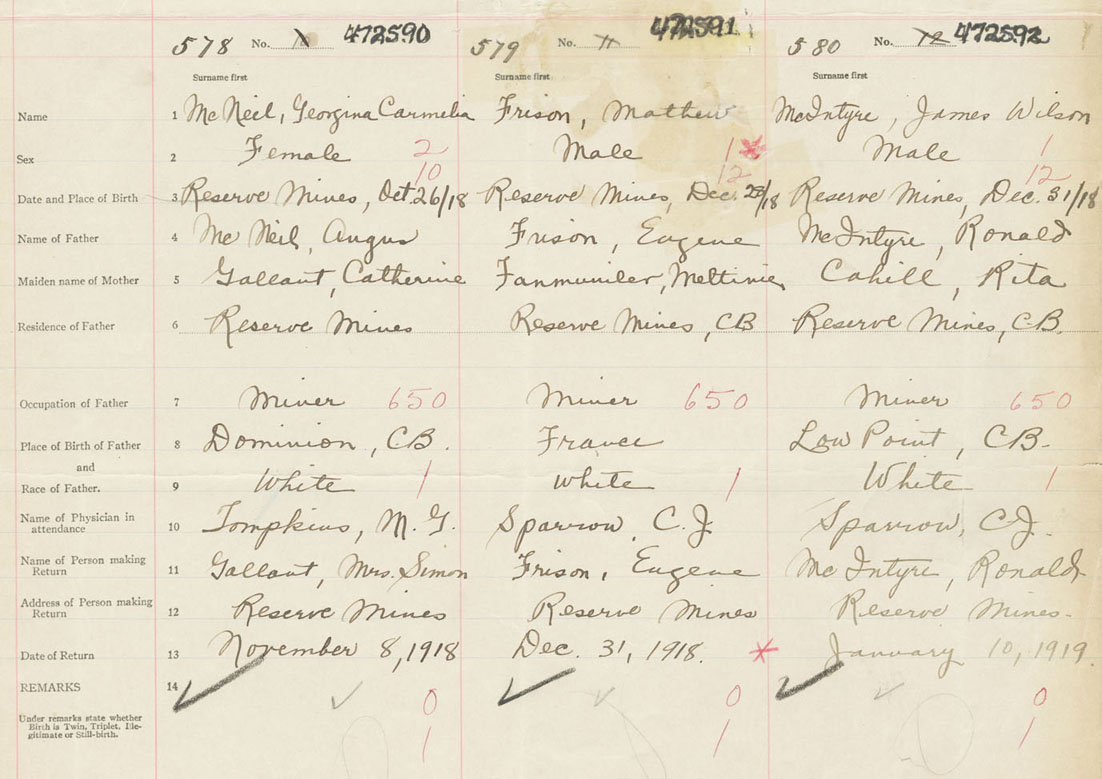 578 No. 10 472590 579 No. 11 472591 580 No. 12 472592
Surname first Surname first Surname first
Name 1 McNeil, Georgina Carmelia Frison, Mathew McIntyre, James Wilson
Sex 2 Female 2 Male 1 * Male 1
10 12 12
Date and Place of Birth 3 Reserve Mines, Oct. 26/18 Reserve Mines, Dec. /18 Reserve Mines, Dec. 31/18
Name of Father 4 McNeil, Angus Frison, Eugene McIntyre, Ronald
Maiden name of Mother 5 Gallant, Catherine Fanmuniler, Meltinie Cahill, Rita
Residence of Father 6 Reserve Mines Reserve Mines, CB Reserve Mines, CB.
Occupation of Father 7 Miner 650 Miner 650 Miner 650
Place of Birth of Father 8 Dominion, CB. France Low Point, CB.
and
Race of Father. 9 White 1 White 1 White 1
Name of Physician in
attendance 10 Tompkins, M. G. Sparrow, C. J. Sparrow, C. J.
Name of Person making
Return 11 Gallant, Mrs. Simon Frison, Eugene McIntyre, Ronald
Address of Person making
Return 12 Reserve Mines Reserve Mines Reserve Mines.
Date of Return 13 November 8, 1918 Dec. 31, 1918. * January 10, 1919.
REMARKS 14 ✓ ✓ 0 ✓ ✓ 0 ✓ ✓ 0
Under remarks state whether
Birth is Twin, Triplet, Ille-
gitimate or Still-birth. 1 1 1